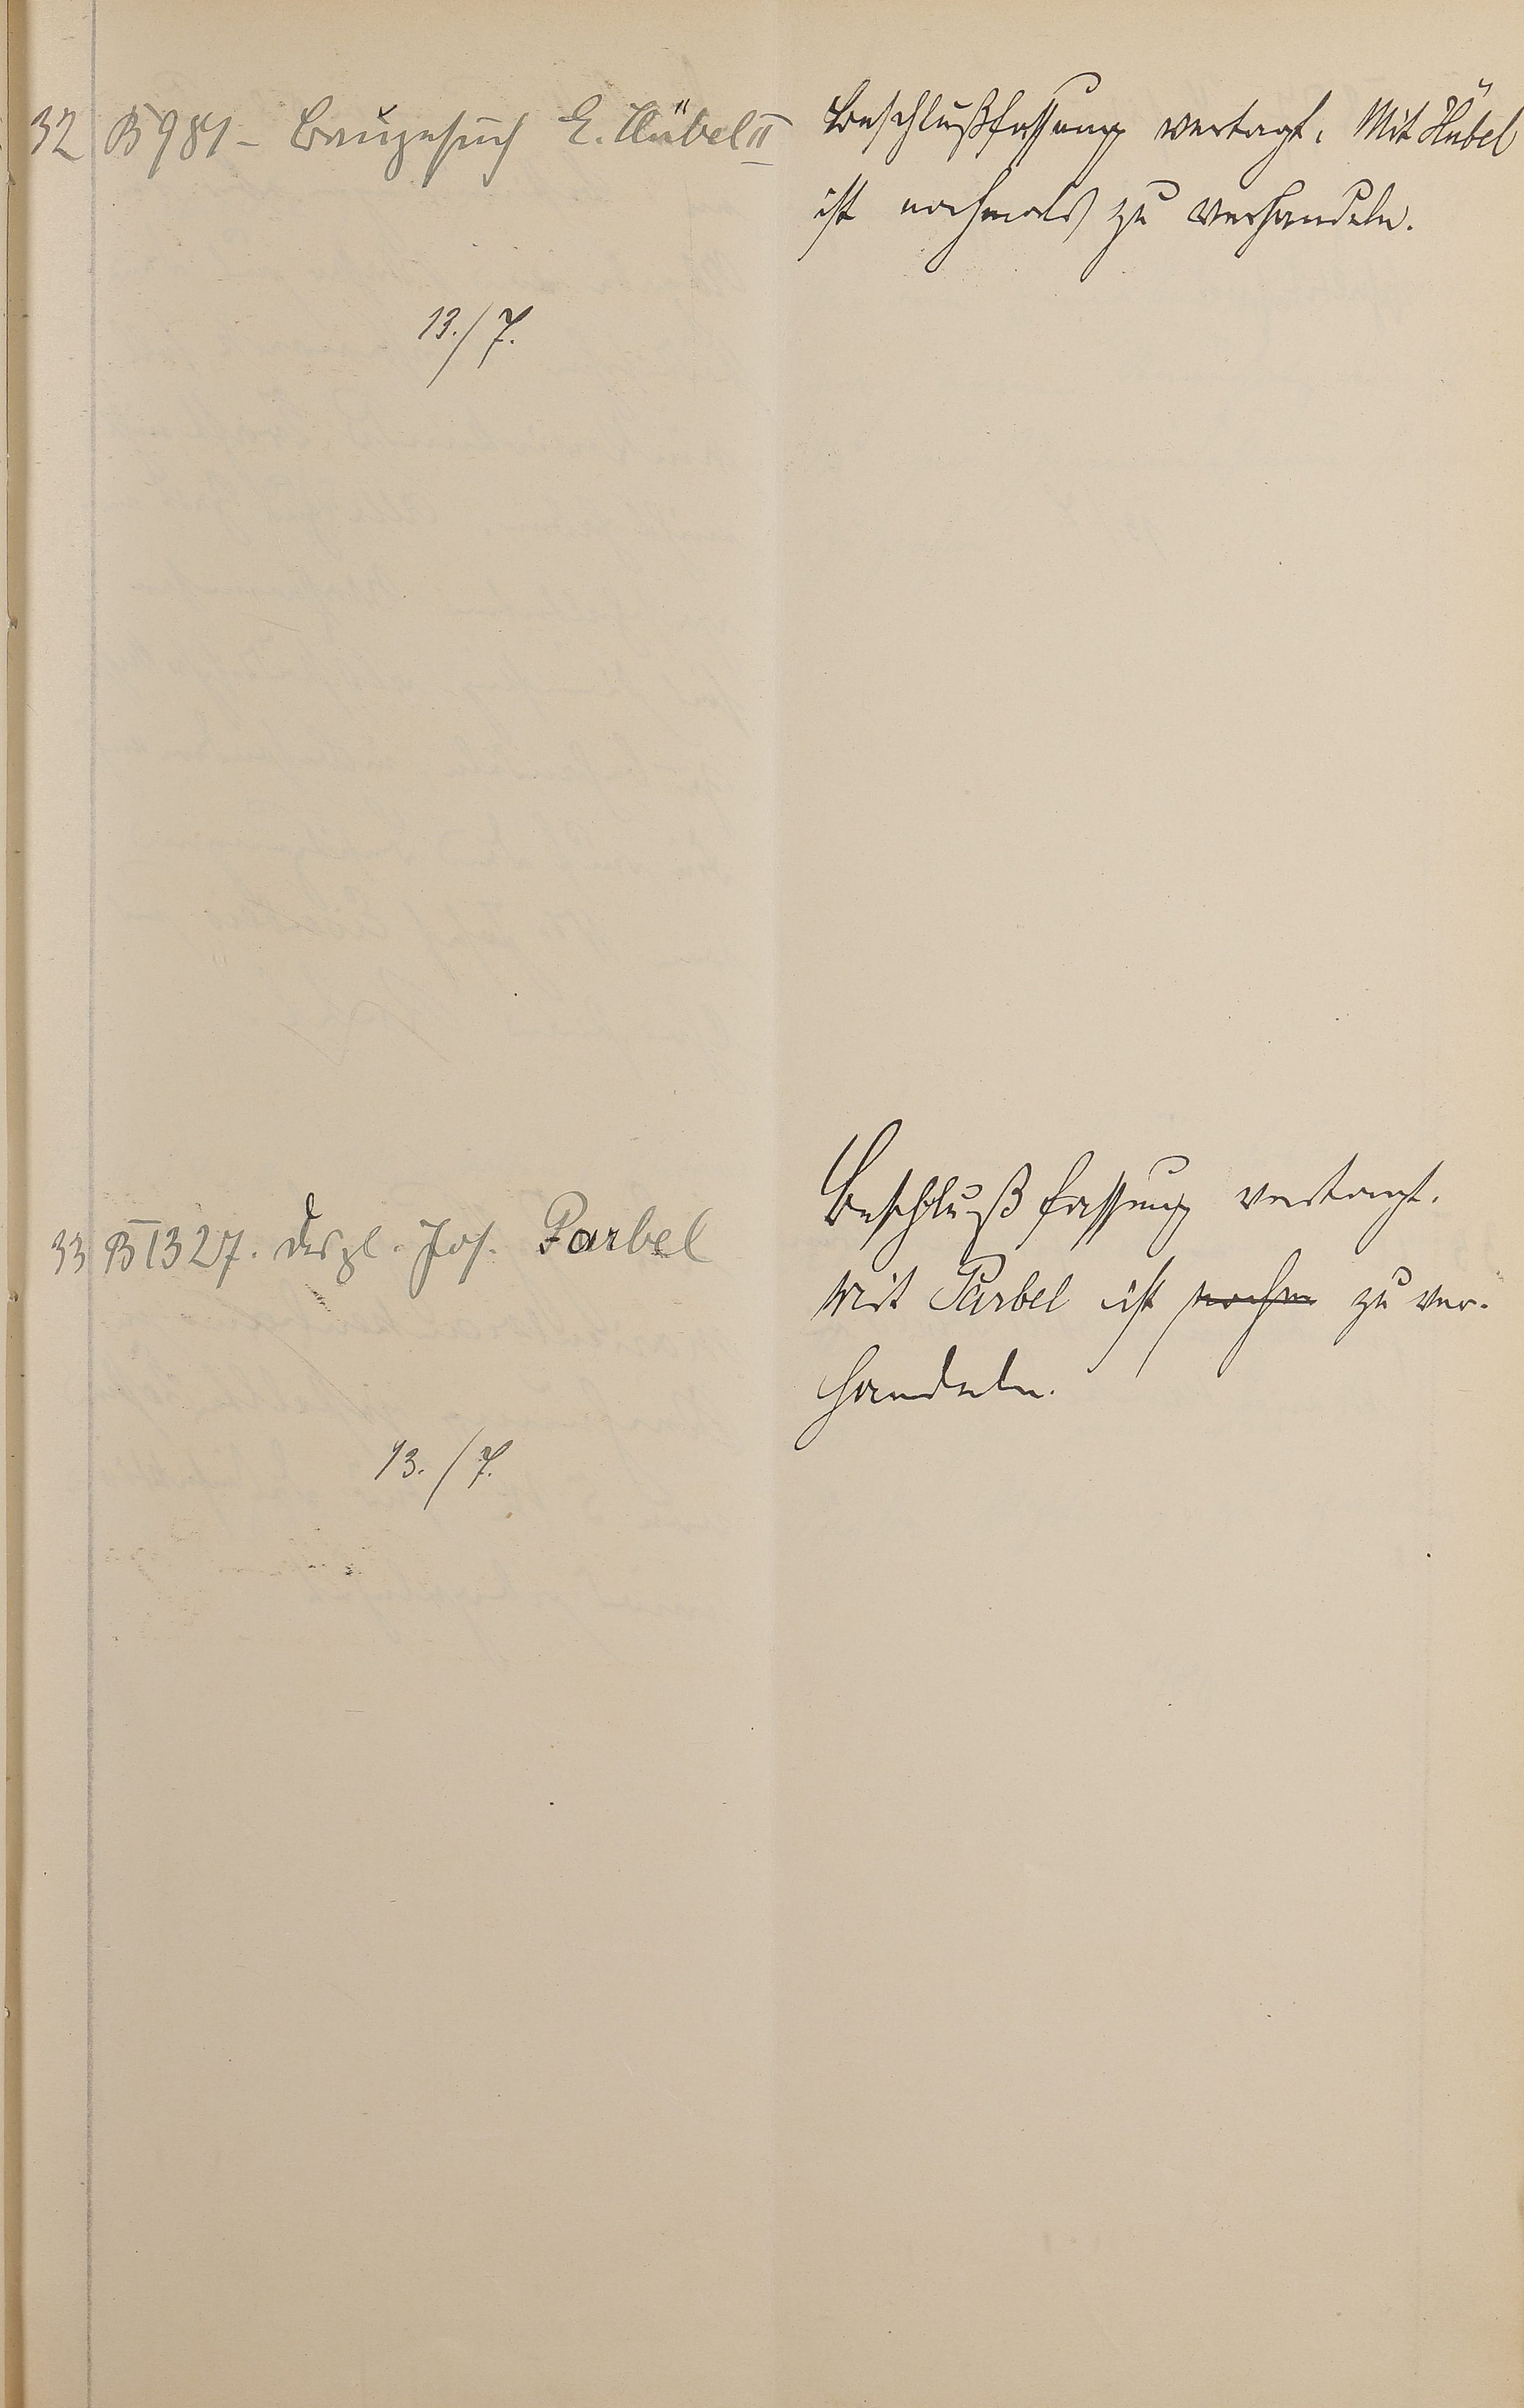 32 B 981 - Baugesuch E. Hübel II
13./7.
Beschlußfassung vertagt. Mit Hübel
ist nochmals zu verhandeln.
33 B 1327. desgl. Jos. Parbel
13./7.
Beschlußfassung vertagt.
Mit Parbel ist nochm zu ver-
handeln.